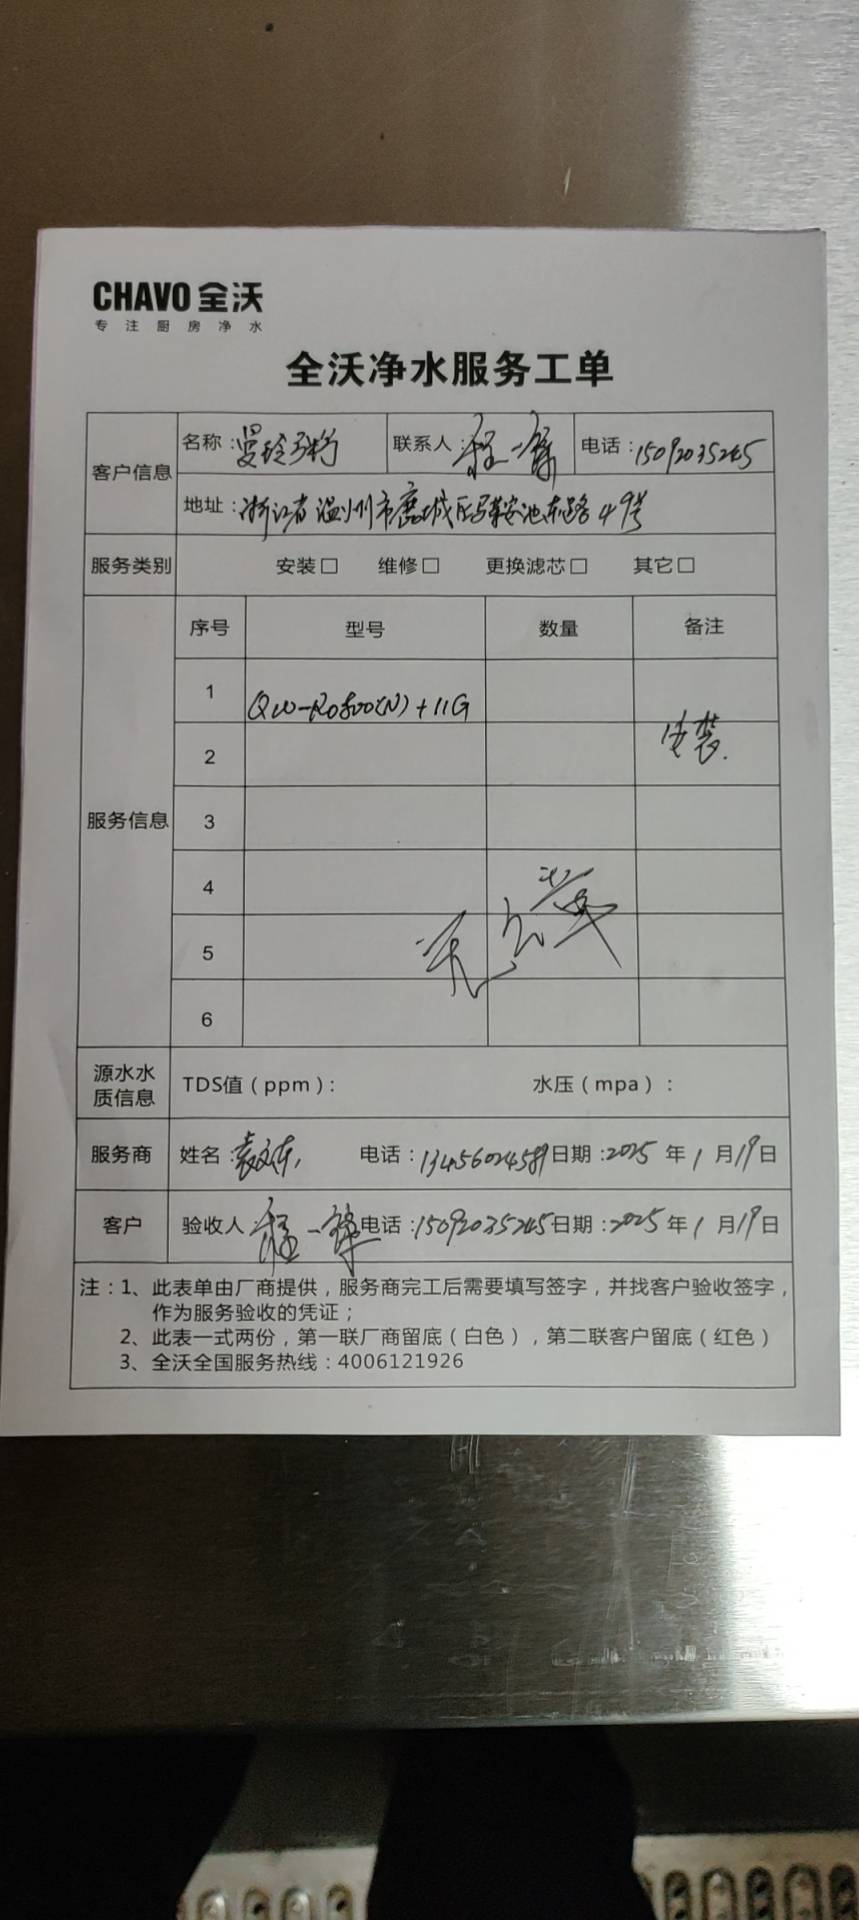 CHAVO 全沃
专注厨房净水
全沃净水服务工单
客户信息 名称：曼玲粥 联系人：程一锋 电话：15092035245
地址：浙江省温州市鹿城区 安池东路49号
服务类别 安装□ 维修□ 更换滤芯□ 其它□
服务信息 序号 型号 数量 备注
1 QW-RO800(N)+11G
2 安装.
3
4
5
6
源水水质信息 TDS值（ppm）： 水压（mpa）：
服务商 姓名： 电话：13456024589 日期：2025年1月19日
客户 验收人 程一锋 电话：15092035245 日期：2025年1月19日
注：1、此表单由厂商提供，服务商完工后需要填写签字，并找客户验收签字，
作为服务验收的凭证；
2、此表一式两份，第一联厂商留底（白色），第二联客户留底（红色）
3、全沃全国服务热线：4006121926